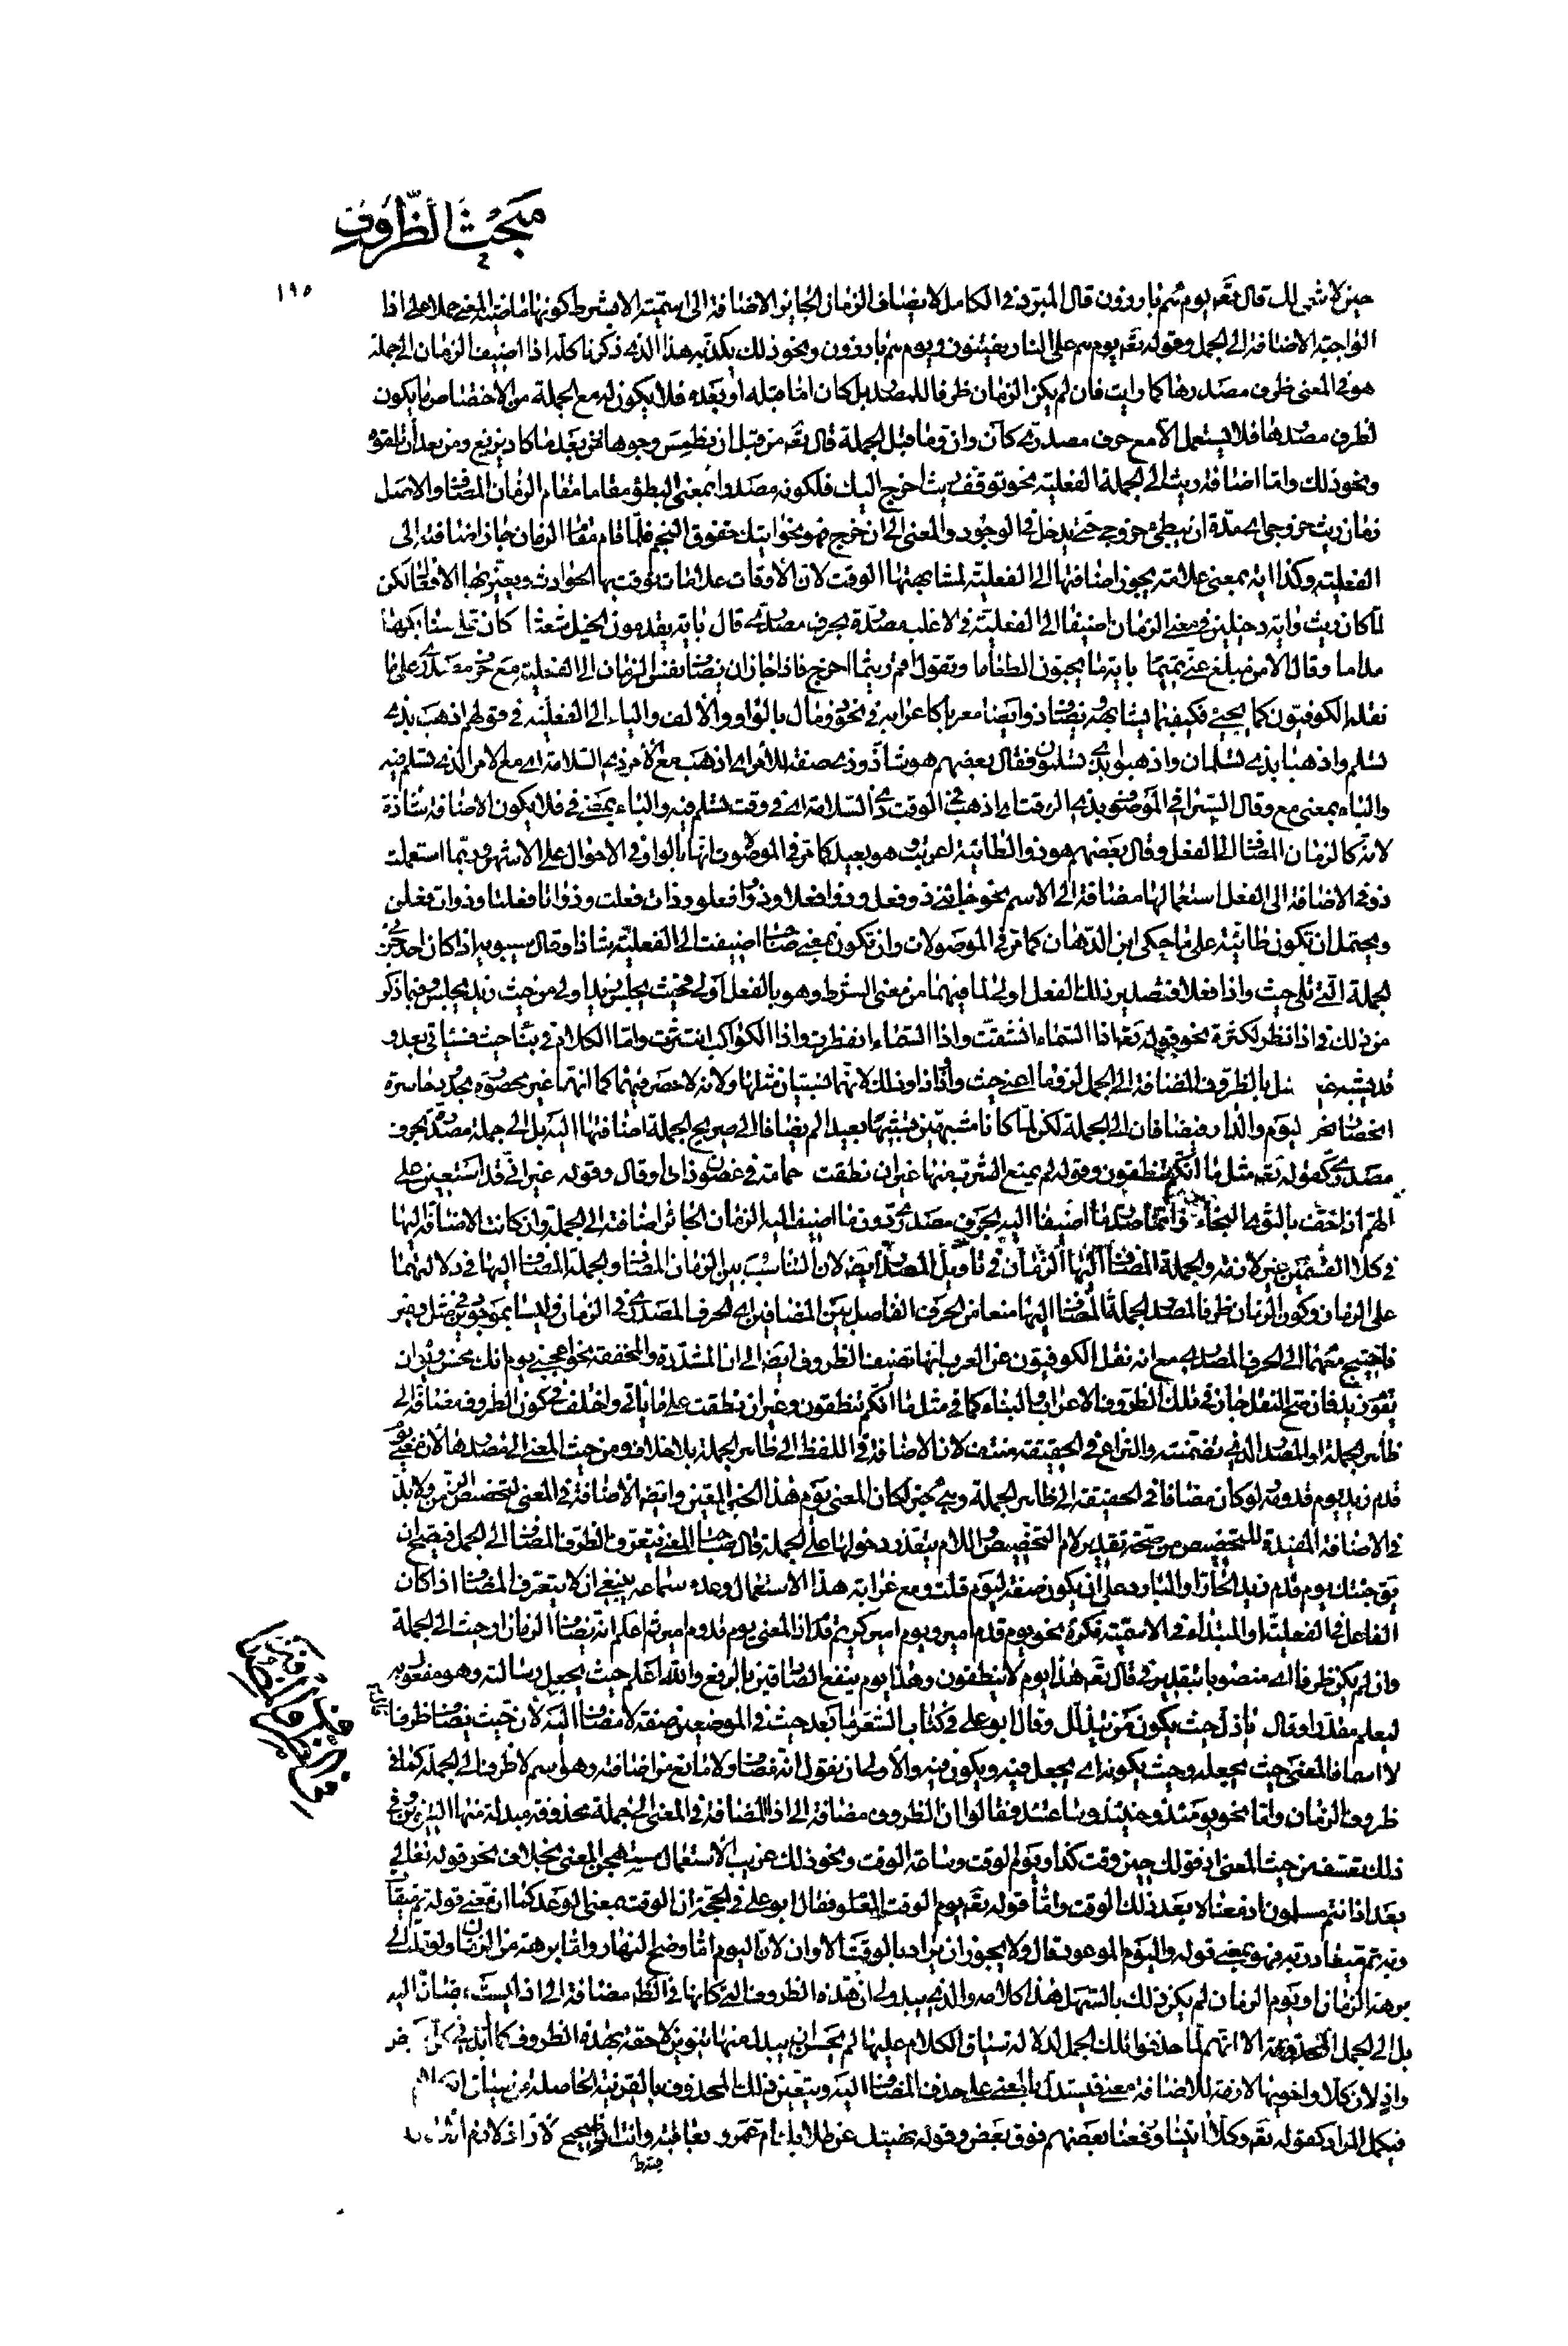 مبحث الظروف
١٩٥
حين لا شئ لك قال تعه يوم هم بارزون قال المبرد في الكامل لا يضاف الزمان الجايز الاضافة الى اسمية الا بشرط كونها ماضية المعنى حملا على اذا
الواجبة الاضافة الى الجمل وقوله تعه يوم هم على النار يفتنون ويوم هم بارزون ونحو ذلك يكذبه هذا الذي ذكرنا كله اذا اضيف الزمان الى جملة
هو في المعنى ظرف مصدرها كما رايت فان لم يكن الزمان ظرفا للمصدر بل كان اما قبله او بعده فلا يكون له مع الجملة من الاختصاص ما يكون
لظرف مصدرها فلا يستعمل الا مع حرف مصدري كان وان وما قبل الجملة قال تعه من قبل ان نطمس وجوها من بعد ما كاد يزيغ ومن بعد ان تلقوه
ونحو ذلك واما اضافة ريث الى الجملة الفعلية نحو توقف ريث اخرج اليك فلكونه مصدرا بمعنى البطؤ مقاما مقام الزمان المضاف والاصل
زمان ريث خروجي اي مدة ان يبطئ خروجي حتى يدخل في الوجود والمعنى الى ان اخرج فهو نحو اتيتك خفوق النجم فلما قام مقام الزمان جاز اضافته الى
الفعلية وكذا اية بمعنى علامة يجوز اضافتها الى الفعلية لمشابهتها الوقت لان الاوقات علامات يوقت بها الحوادث ويعين بها الافعال لكن
لما كان ريث واية دخيلين في معنى الزمان اضيفا الى الفعلية في الاغلب مصدرة بحرف مصدري قال باية يقدمون الخيل شعثا كان على سنابكها
مداما وقال الا من مبلغ عني تميما باية ما يحبون الطعاما وتقول اقم ريثما اخرج فاذا جاز ان يضاف نفس الزمان الى الفعلية مع حرف مصدري على ما
نقله الكوفيون كما يجيئ فكيف بما يشابهه ويضاف ذو ايضا معربا كاعرابه في نحو ذو مال بالواو والالف والياء الى الفعلية في قولهم اذهب بذي
تسلم واذهبا بذي تسلمان واذهبوا بذي تسلمون فقال بعضهم هو شاذ وذي صفة للامر اي اذهب مع الامر ذي السلامة اي مع الامر الذي تسلم فيه
والباء بمعنى مع وقال السيرافي الموصوف بذي الوقت اي اذهب في الوقت ذي السلامة اي في وقت تسلم فيه والباء بمعنى في فلا يكون الاضافة شاذة
لانه كالزمان المضاف الى الفعل وقال بعضهم هو ذو الطائية اعربت وهو بعيد كما مر في الموصولات انها بالواو في الاحوال على الاشهر وربما استعملت
ذو في الاضافة الى الفعل استعمالها مضافة الى الاسم نحو جائني ذو فعل وذوا فعلا وذووا فعلوا وذات فعلت وذواتا فعلتا وذوات فعلن
ويحتمل ان تكون طائية على ما حكى ابن الدهان كما مر في الموصولات وان تكون بمعنى صاحب اضيفت الى الفعلية شاذا وقال سيبويه اذا كان احد جزئي
الجملة التي تلي حيث واذا فعلا فتصدير ذلك الفعل اولى لما فيهما من معنى الشرط وهو بالفعل اولى فحيث يجلس زيد اولى من حيث زيد يجلس وفيما ذكر
من ذلك في اذا نظر لكثرة نحو قوله تعه اذا السماء انشقت واذا السماء انفطرت واذا الكواكب انتثرت واما الكلام في بناء حيث فسياتي بعد و
قد يشبه غير مثل بالظروف المضافة الى الجمل لزوما اعني حيث واذ اذا وذلك لانهما نسبيان مثلها ولانه لا حصر فيهما كما انها غير محصورة بحدود حاصرة
مصدري كقوله تعه مثل ما انكم تنطقون وقوله لم يمنع الشرب منها غير ان نطقت حمامة في غصون ذات اوقال وقوله غير اني قد استعين على
الهم اذا خف بالثوي النجاء وانما صدر ما اضيفا اليه بحرف مصدري دون ما اضيف اليه الزمان الجائز اضافته الى الجملة وان كانت الاضافة اليها
في كلا القسمين غير لازمة والجملة المضاف اليها الزمان في تاويل المصدر ايضه لان التناسب بين الزمان المضاف والجملة المضاف اليها في دلالتهما
على الزمان وكون الزمان ظرفا لمصدر الجملة المضاف اليها منعا من الحرف الفاصل بين المضافين اي الحرف المصدري في الزمان وليسا بموجودين في مثل وغير
فاحتيج معهما الى الحرف المصدري مع انه نقل الكوفيون عن العرب انها تضيف الظروف ايضه الى ان المشددة والمخففة نحو اعجبني يوم انك محسن ويوم ان
يقوم زيد فان صح النقل جاز في تلك الظروف الاعراب والبناء كما في مثل ما انكم تنطقون وغير ان نطقت على ما ياتي واختلف في كون الظروف مضافة الى
ظاهر الجملة او المصدر الذي تضمنته والنزاع في الحقيقة منتف لان الاضافة في اللفظ الى ظاهر الجملة بلا خلاف ومن حيث المعنى الى مصدرها لان معنى يوم
قدم زيد يوم قدومه لو كان مضافا في الحقيقة الى ظاهر الجملة وهي خبر لكان المعنى يوم هذا الخبر المعين وايضه الاضافة في المعنى لتخصيص ولا بد
في الاضافة المفيدة للتخصيص من صحة تقدير لام التخصيص واللام يتعذر دخولها على الجملة قال صاحب المغني يتعرف الظرف المضاف الى الجمل فيصح ان
يق جئتك يوم قدم زيد الحار او البارد على ان يكون صفة ليوم قلت ومع غرابة هذا الاستعمال وعدم سماعه ينبغي ان لا يتعرف المضاف اذا كان
الفاعل في الفعلية او المبتداء في الاسمية نكرة نحو يوم قدم امير ويوم امير كريم قدم اذ المعنى يوم قدوم امير ثم اعلم انه يضاف الزمان او حيث الى الجملة
وان لم يكن ظرفا اي منصوبا بتقدير في قال تعه هذا يوم لا ينطقون وهذا يوم ينفع الصادقين بالرفع والله اعلم حيث يجعل رسالته وهو مفعول به
ليعلم مقدرا وقال باذل حيث يكون من يتذلل وقال ابو علي في كتاب الشعر ما بعد حيث في الموضعين صفة لا مضاف اليه لان حيث يضاف ظرفا
لا اسما فالمعنى حيث يجعله وحيث يكونه اي يجعل فيه ويكون فيه والاولى ان نقول انه مضاف ولا مانع من اضافته وهو اسم لا ظرف الى الجملة كما في
ظروف الزمان واما نحو يومئذ وحينئذ وساعتئذ فقالوا ان الظروف مضافة الى اذ المضافة في المعنى الى جملة محذوفة مبدلة منها التنوين وفي
ذلك تعسف من حيث المعنى اذ قولك حين وقت كذا ويوم الوقت وساعة الوقت ونحو ذلك غريب الاستعمال مستهجن المعنى بخلاف نحو قوله تعالى
بعد اذ انتم مسلمون اذ معناه بعد ذلك الوقت واما قوله تعه يوم الوقت المعلوم فقال ابو علي في الحجة ان الوقت بمعنى الوعد كما ان معنى قوله تم ميقات
ربه تم ميعاد ربه فهو بمعنى قوله واليوم الموعود قال ولا يجوز ان يراد بالوقت الاوان لان اليوم اما وضح النهار واما برهة من الزمان ولو قلت الى
برهة الزمان او يوم الزمان لم يكن ذلك بالسهل هذا كلامه والذي يبدو لي ان هذه الظروف التي كانها في الظاهر مضافة الى اذ ليست بمضافة اليه
بل الى الجمل المحذوفة الا انهم لما حذفوا تلك الجمل لدلالة سياق الكلام عليها لم يحسن ان يبدل منها تنوين لاحقة بهذه الظروف كما
واذ لان كلا واخويها لازمة للاضافة معنى فيستدل بالمعنى على حذف المضاف اليه ويتعين ذلك المحذوف بالقرينة الحاصلة من سياق
فيكمل المراد كقوله تعه وكلا اتينا ورفعنا بعضهم فوق بعض وقوله نهيتك عن طلابك ام عمرو بعاقبة وانت اذ صحيح لان اذ لازم